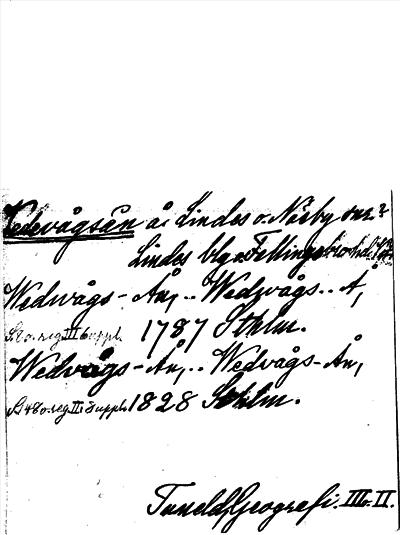 Vedevågsån å i Lindes o. Näsby snr?
Lindes blg o. Fellingsbro hd
Wedwågs-Ån, .. Wedwågs.. Å,
S. 80. reg. III 6 uppl. 1787 Sthlm.
Wedvågs-Ån, .. Wedvågs-Ån,
S 48 o. reg II. 8 uppl. 1828 Sthlm.
Tuneld, Geografi. III. II.